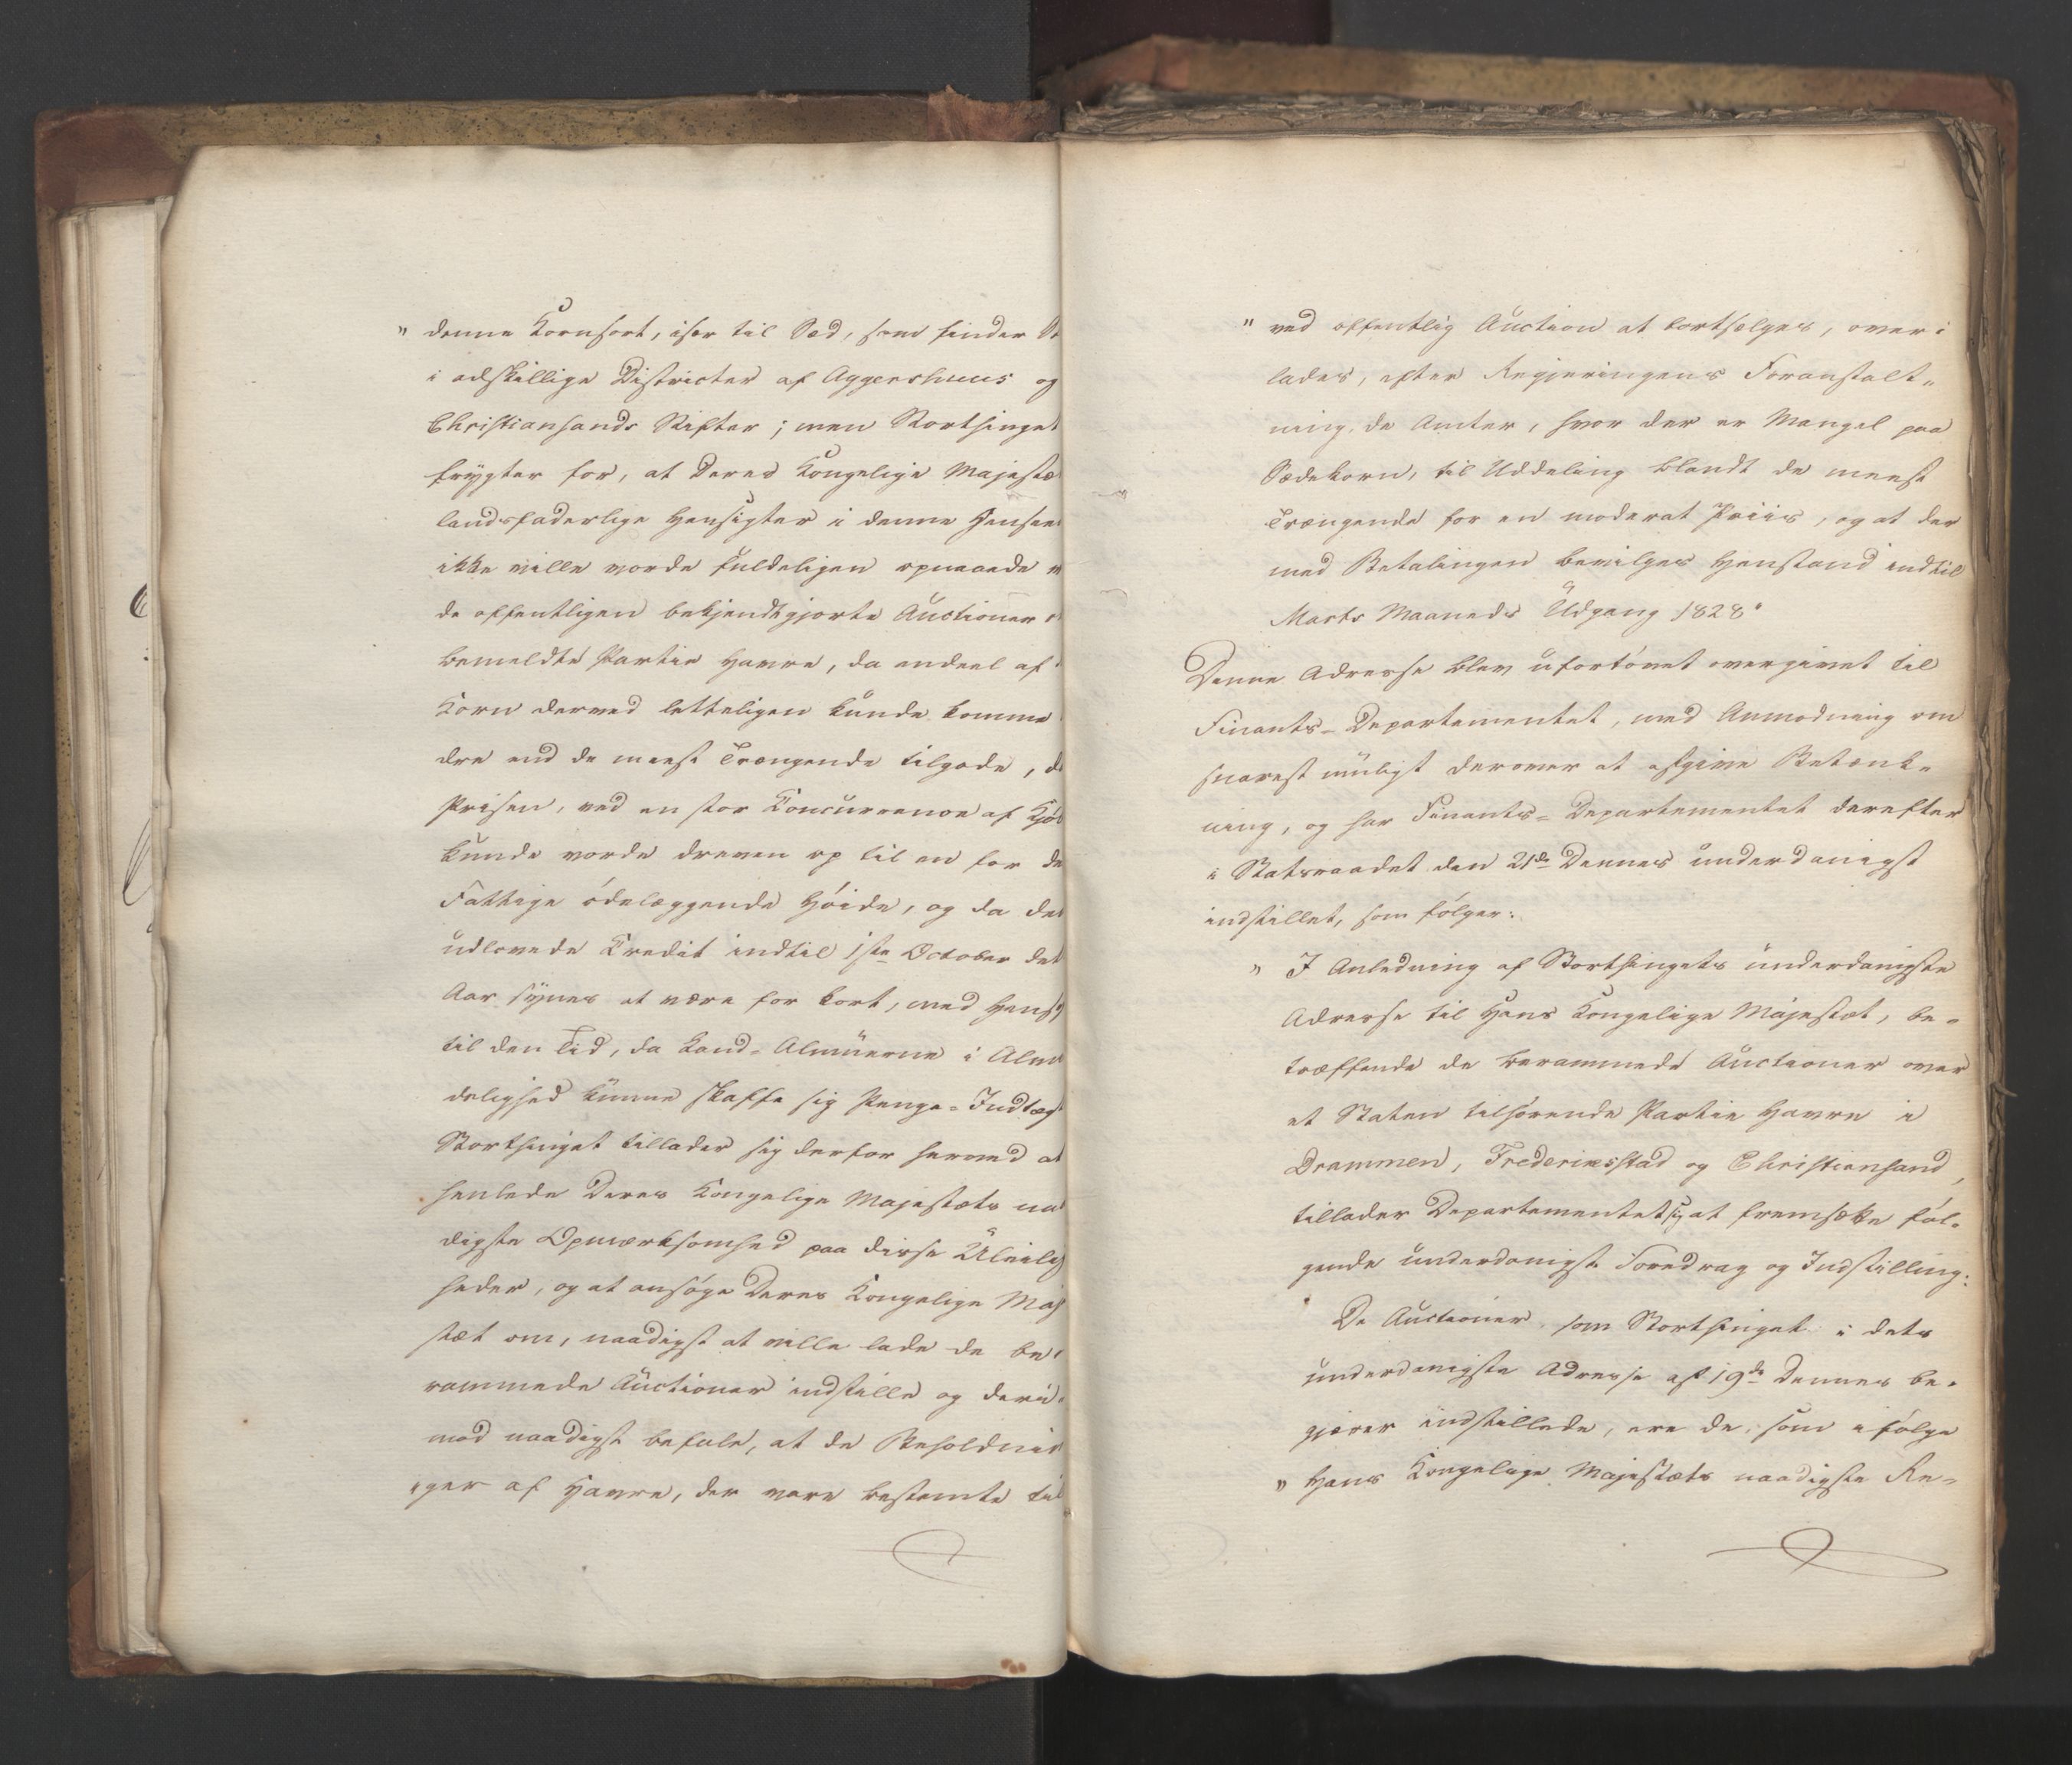 " denne Kornsort, især til Sæd, som finder St
i adskillige Districter af Aggershuus og
Christiansands Stifter; men Storthinget
frygter for, at Deres Kongelige Majestæ
landsfaderlige Hensigter i denne Hensee
ikke ville vorde fuldeligen opnaaede
de offentligen bekjendtgjorte Auctioner
bemeldte Partie Havre, da endeel af
Korn derved letteligen kunde komme
dre end de meest Trængende tilgode, d
Prisen, ved en stor Concurrence af Kjø
kunde vorde dreven op til en for de
Fattige ødelæggende Høide, og da den
udlovede Credit indtil 1ste October det
Aar synes at være for kort, med Hens
til den Tid, da Land-Almuerne i Alm
delighed kunne skaffe sig Penge-Indtæg
Storthinget tillader sig derfor herved at
henlede Deres Kongelige Majestæts naa
digste Opmærksomhed paa disse Uleilig
heder, og at ansøge Deres Kongelige Maj
stæt om, naadigst at ville lade de be-
rammede Auctioner indstille og deri-
mod naadigst befale, at de Beholdnin
"ger af Havre, der vare bestemte til
" ved offentlig Auction at bortsælges, over-
lades, efter Regjeringens Foranstalt-
ning, de Amter, hvor der er Mangel paa
Sædekorn, til Uddeling blandt de meest
Trængende for en moderat Priis, og at der
med Betalingen bevilges Henstand indtil
Marts Maaneds Udgang 1828"
Denne Adresse blev ufortøvet overgivet til
Finants-Departementet, med Anmodning om
snarest muligt derover at afgive Betænk-
ning, og har Finants-Departementet derefter
i Statsraadet den 21de Dennes underdanigst
indstillet, som følger:
" I Anledning af Storthingets underdanigste
Adresse til Hans Kongelige Majestæt, be-
træffende de berammede Auctioner over
et Staten tilhørende Partie Havre i
Drammen, Frederiksstad og Christiansand,
tillader Departementet sig at fremsætte føl-
gende underdanigst Foredrag og Indstilling:
De Auctioner, som Storthinget i dets
underdanigste Adresse af 19de Dennes be-
gjærer indstillede, ere de, som ifølge
" Hans Kongelige Majestæts naadigste Re-